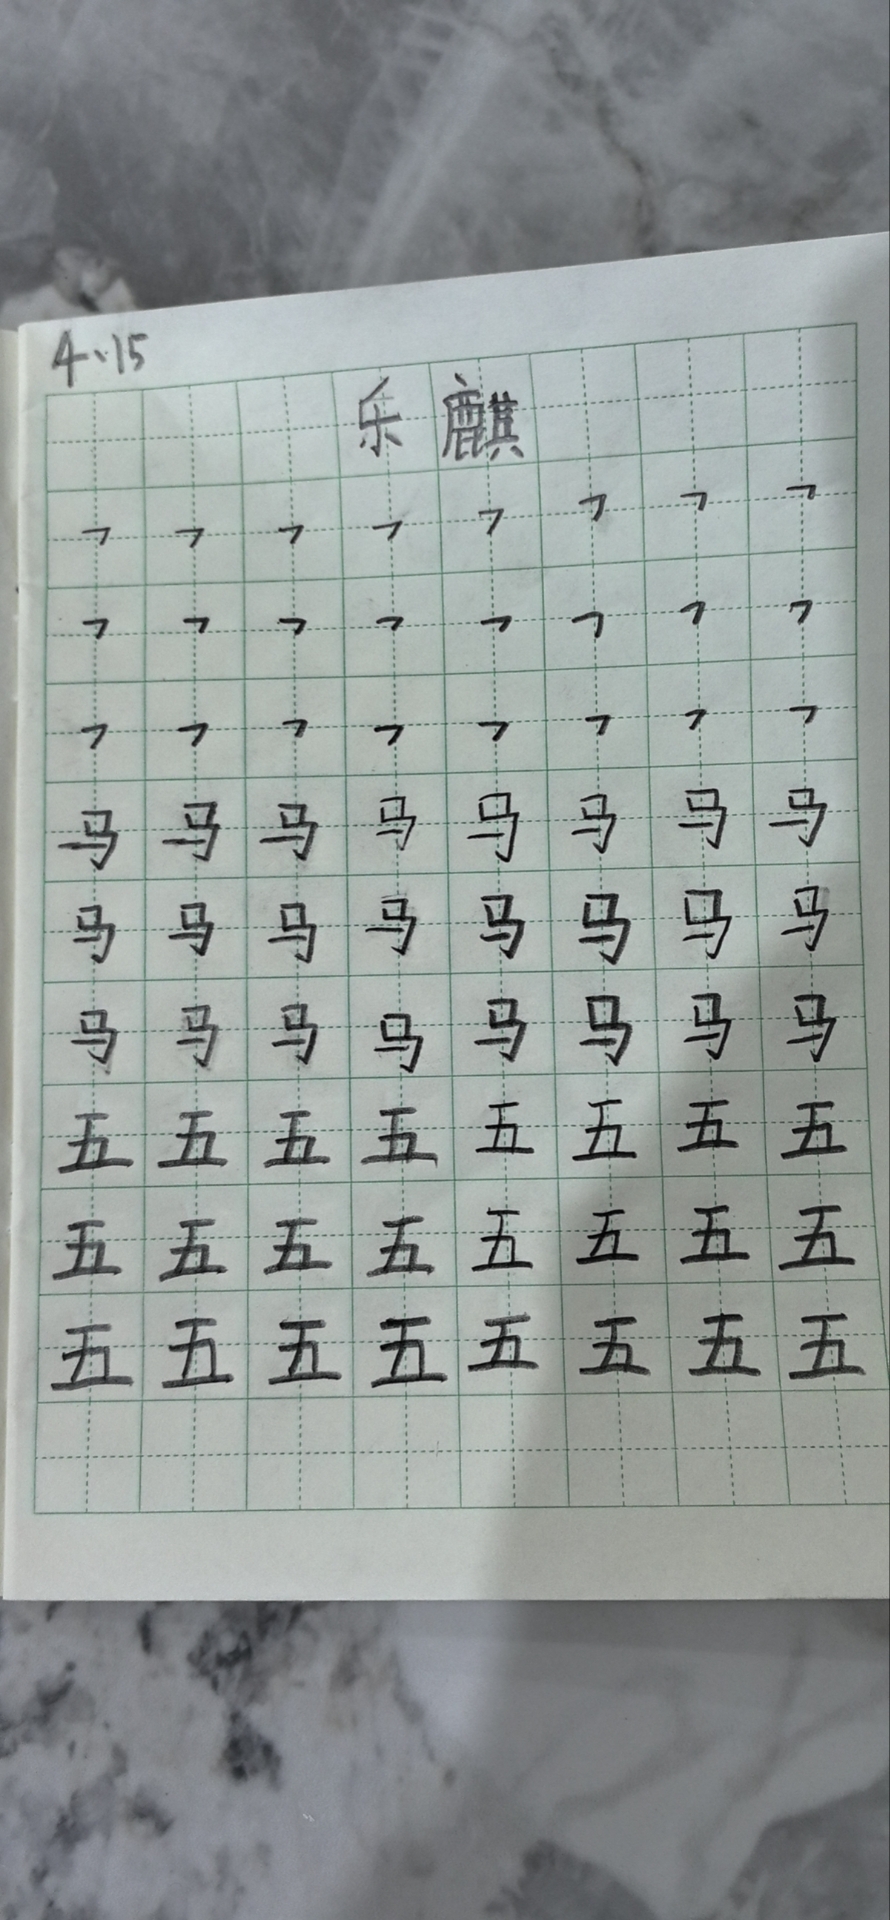 4.15
乐麒
㇇㇇㇇㇇㇇㇇㇇㇇
㇇㇇㇇㇇㇇㇇㇇㇇
㇇㇇㇇㇇㇇㇇㇇㇇
马马马马马马马马
马马马马马马马马
马马马马马马马马
五五五五五五五五
五五五五五五五五
五五五五五五五五